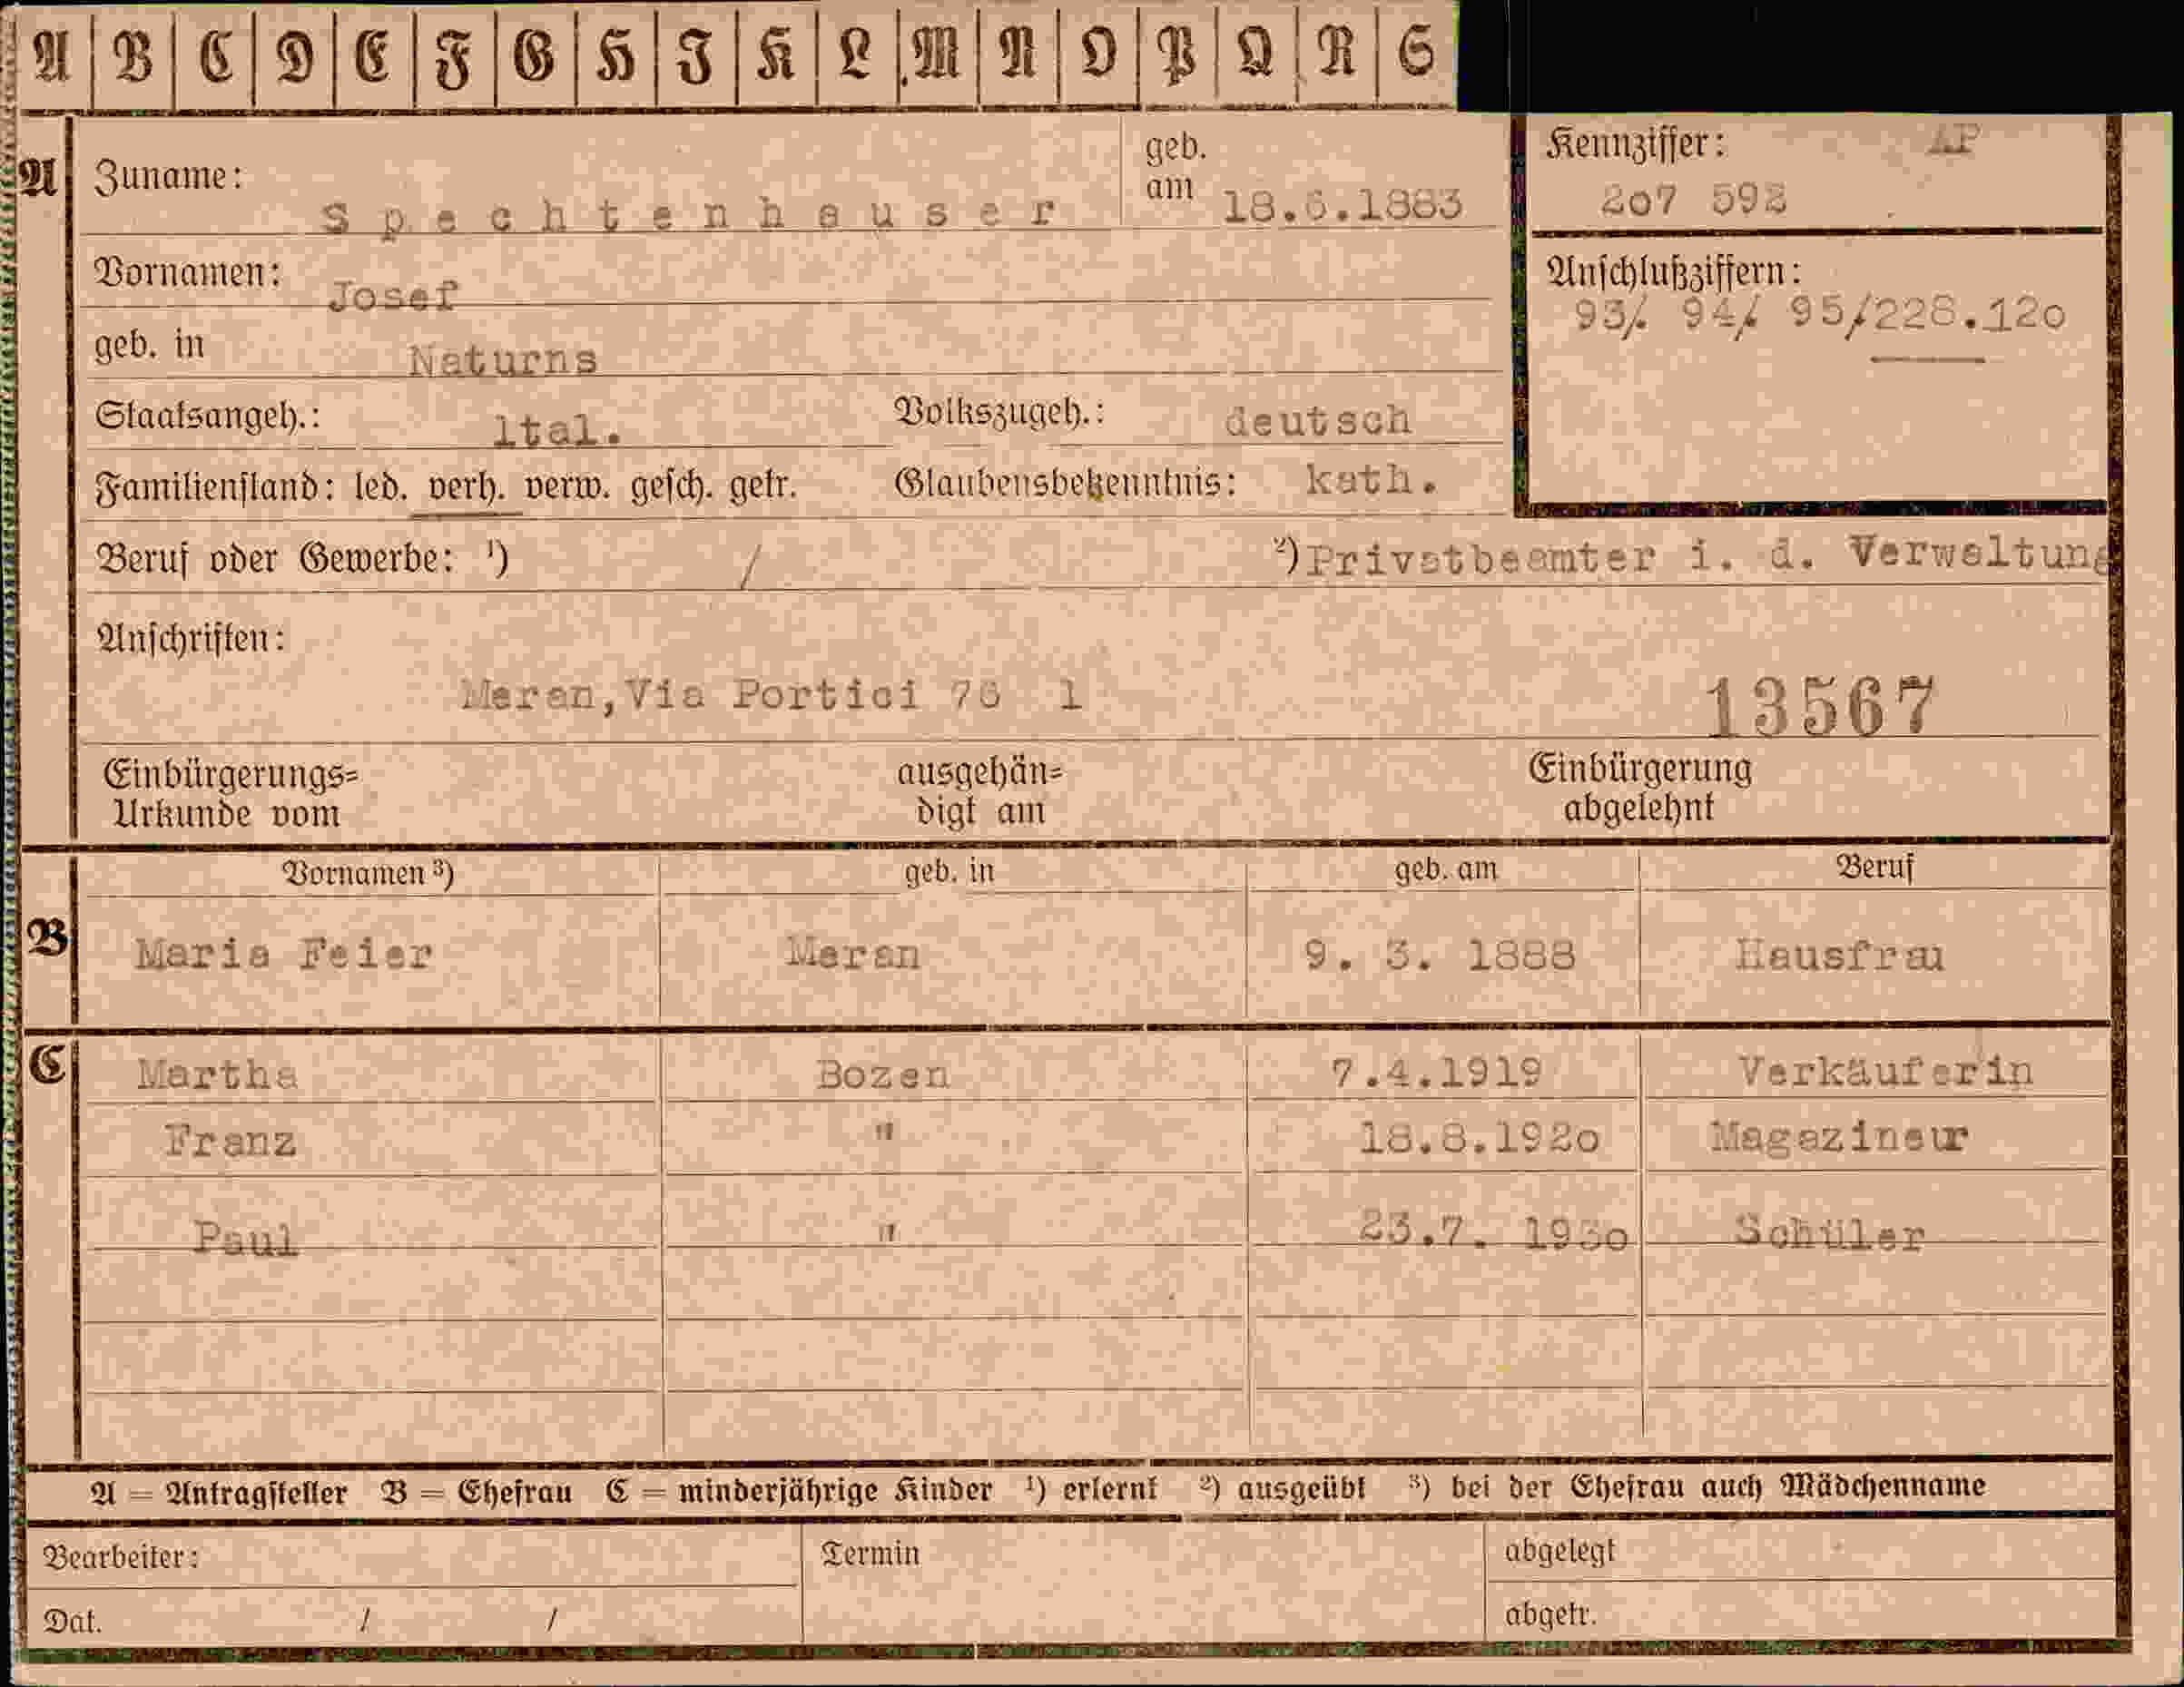 A B C D E F G H I K L M N O P Q R S
A Zuname: Spechtenhauser geb. am 18.6.1883
Kennziffer: AP
207 592
Vornamen: Josef
Anschlußziffern:
93/. 94/. 95/228.12o
geb. in Naturns
Staatsangeh.: ital. Volkszugeh.: deutsch
Familienstand: led. verh. verw. gesch. getr. Glaubensbekenntnis: kath.
Beruf oder Gewerbe: ¹) / ²) Privatbeamter i. d. Verwaltung
Anschriften:
Meran, Via Portici 76 1 13567
Einbürgerungs= ausgehän= Einbürgerung
Urkunde vom digt am abgelehnt
Vornamen ³) geb. in geb. am Beruf
B Maria Feier Meran 9. 3. 1888 Hausfrau
C Martha Bozen 7.4.1919 Verkäuferin
Franz " 18.8.192o Magazineur
Paul " 23.7. 193o Schüler
A = Antragsteller B = Ehefrau C = minderjährige Kinder ¹) erlernt ²) ausgeübt ³) bei der Ehefrau auch Mädchenname
Bearbeiter: Termin abgelegt
Dat. / / abgetr.